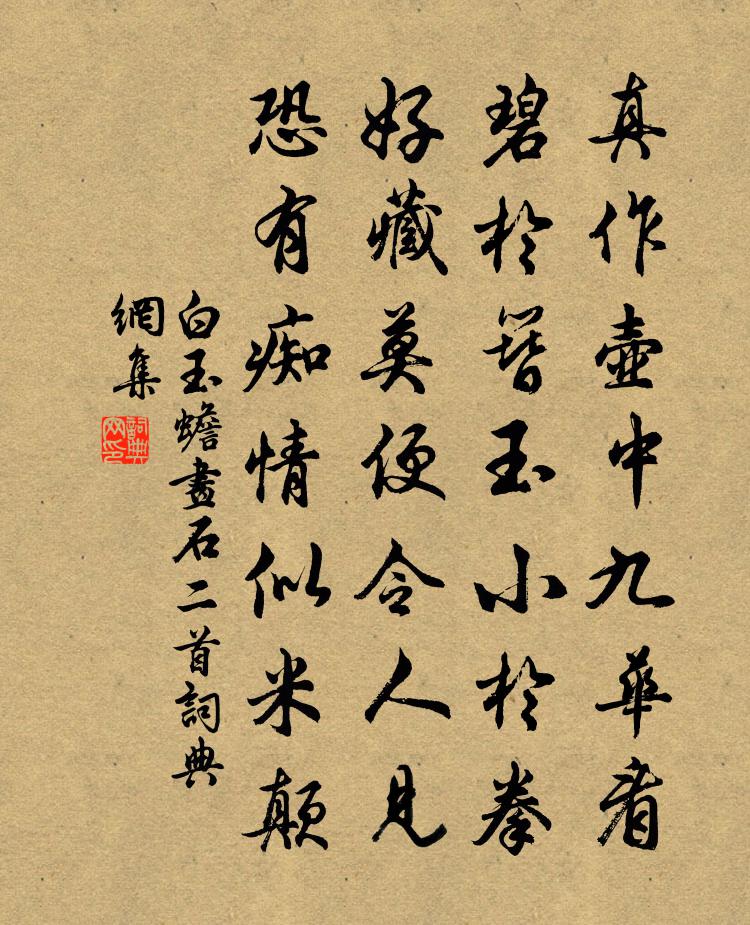 真作壺中九華看
碧於簪玉小於拳
好藏莫便令人見
恐有痴情似米顛
白玉蟾畫石二首詞典
網集
詞典
网印